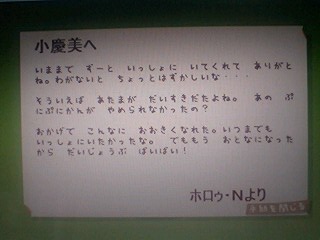 小慶美へ
いままで ずーと いっしょに いてくれて ありがと
ね。わがないと ちょっとはずかしいな・・・
そういえば あたまが だいすきだたよね。 あの ぷ
にぷにかんが やめられなかったの?
おかげで こんなに おおきくなれた。いつまでも
いっしょにいたかったな。でももう おとなになった
から だいじょうぶ ばいばい!
ホロゥ・Nより
手紙を閉じる